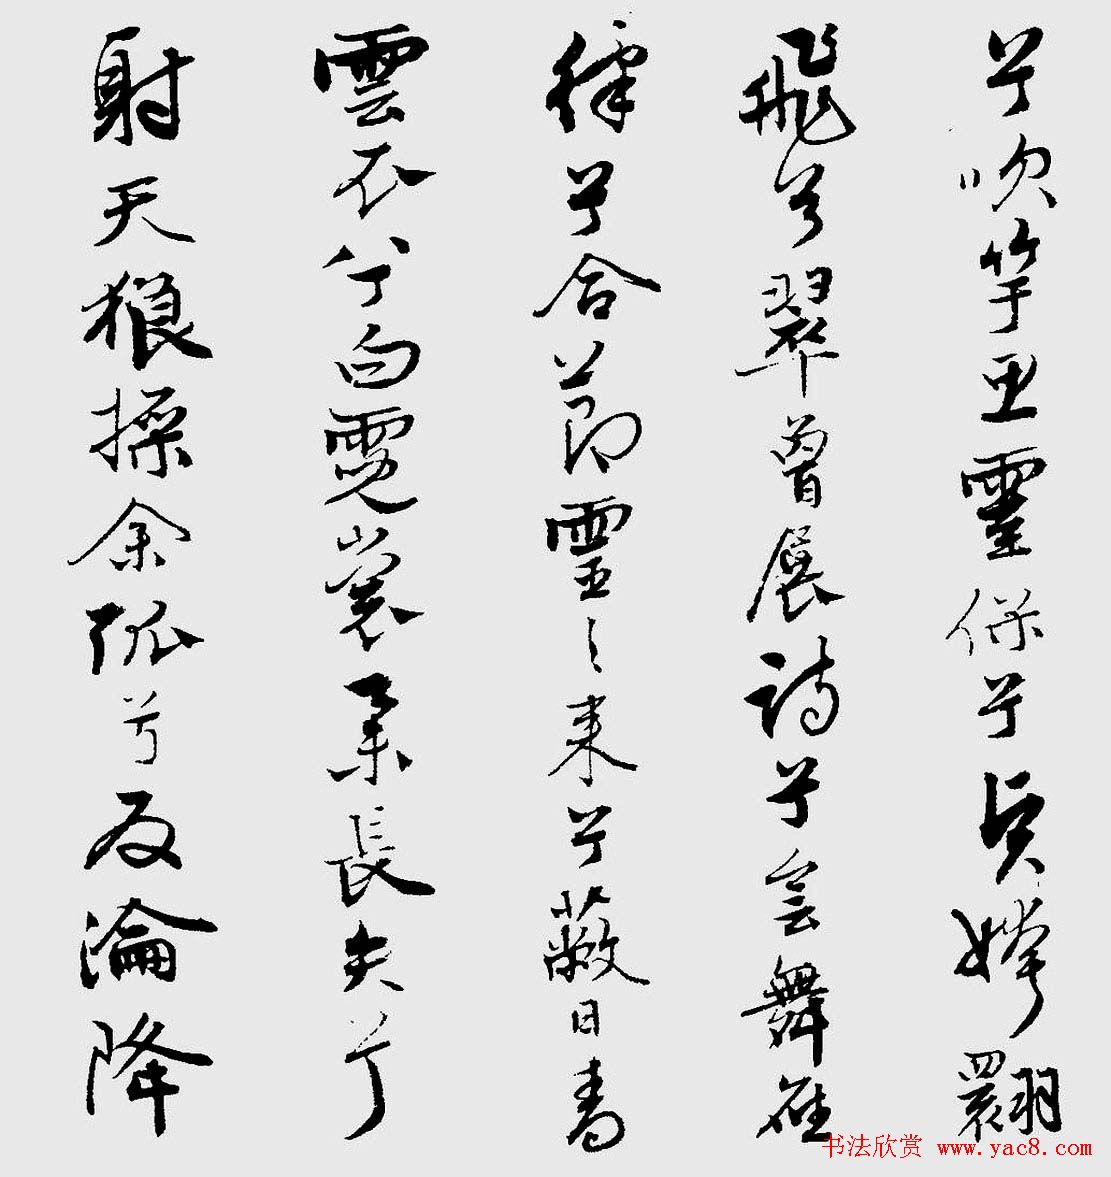 兮吹竽思靈保兮賢姱翾
飛兮翠曾展詩兮會舞應
律兮合節靈之來兮蔽日青
雲衣兮白霓裳舉長矢兮
射天狼操余弧兮反淪降
书法欣赏 www.yac8.com